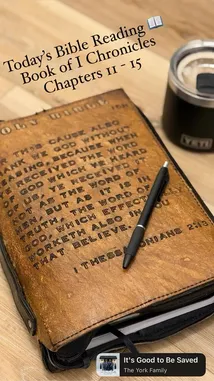 Today's Bible Reading 📖
Book of I Chronicles
Chapters 11 - 15
HOLY BIBLE
THIS CAUSE ALSO
THANK WE GOD WITHOUT
CEASING, BECAUSE, WHEN
YE RECEIVED THE WORD
OF GOD WHICH YE HEARD
OF US, YE RECEIVED IT
NOT AS THE WORD OF
MEN, BUT AS IT IS IN
TRUTH, THE WORD OF GOD,
WHICH EFFECTUALLY
WORKETH ALSO IN YOU
THAT BELIEVE.
1 THESSALONIANS 2:13
YETI
It's Good to Be Saved
The York Family